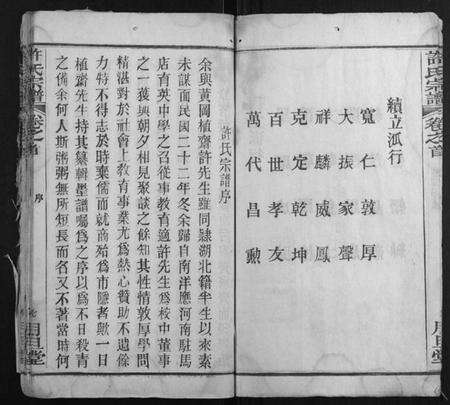 許氏宗譜 卷之首
續立派行
寬仁敦厚
大振家聲
祥麟威鳳
克定乾坤
百世孝友
萬代昌勳
月旦堂
許氏宗譜序
余與黃岡植齋許先生雖同隸湖北籍半生以來素
未謀面民國二十二年冬余歸自南洋應河南駐馬
店育英中學之召從事教育適許先生為校中董事
之一獲與朝夕相見聚談之餘知其性情敦厚學問
精湛對於社會上教育事業尤為熱心贊助不遺餘
力特不得志於時棄儒而就商殆為市隱者歟一日
植齋先生持其纂輯墨譜囑為之序以為不日殺青
之備余何人斯粥粥無所短長而名又不著當時何
許氏宗譜 卷之首 序
月旦堂